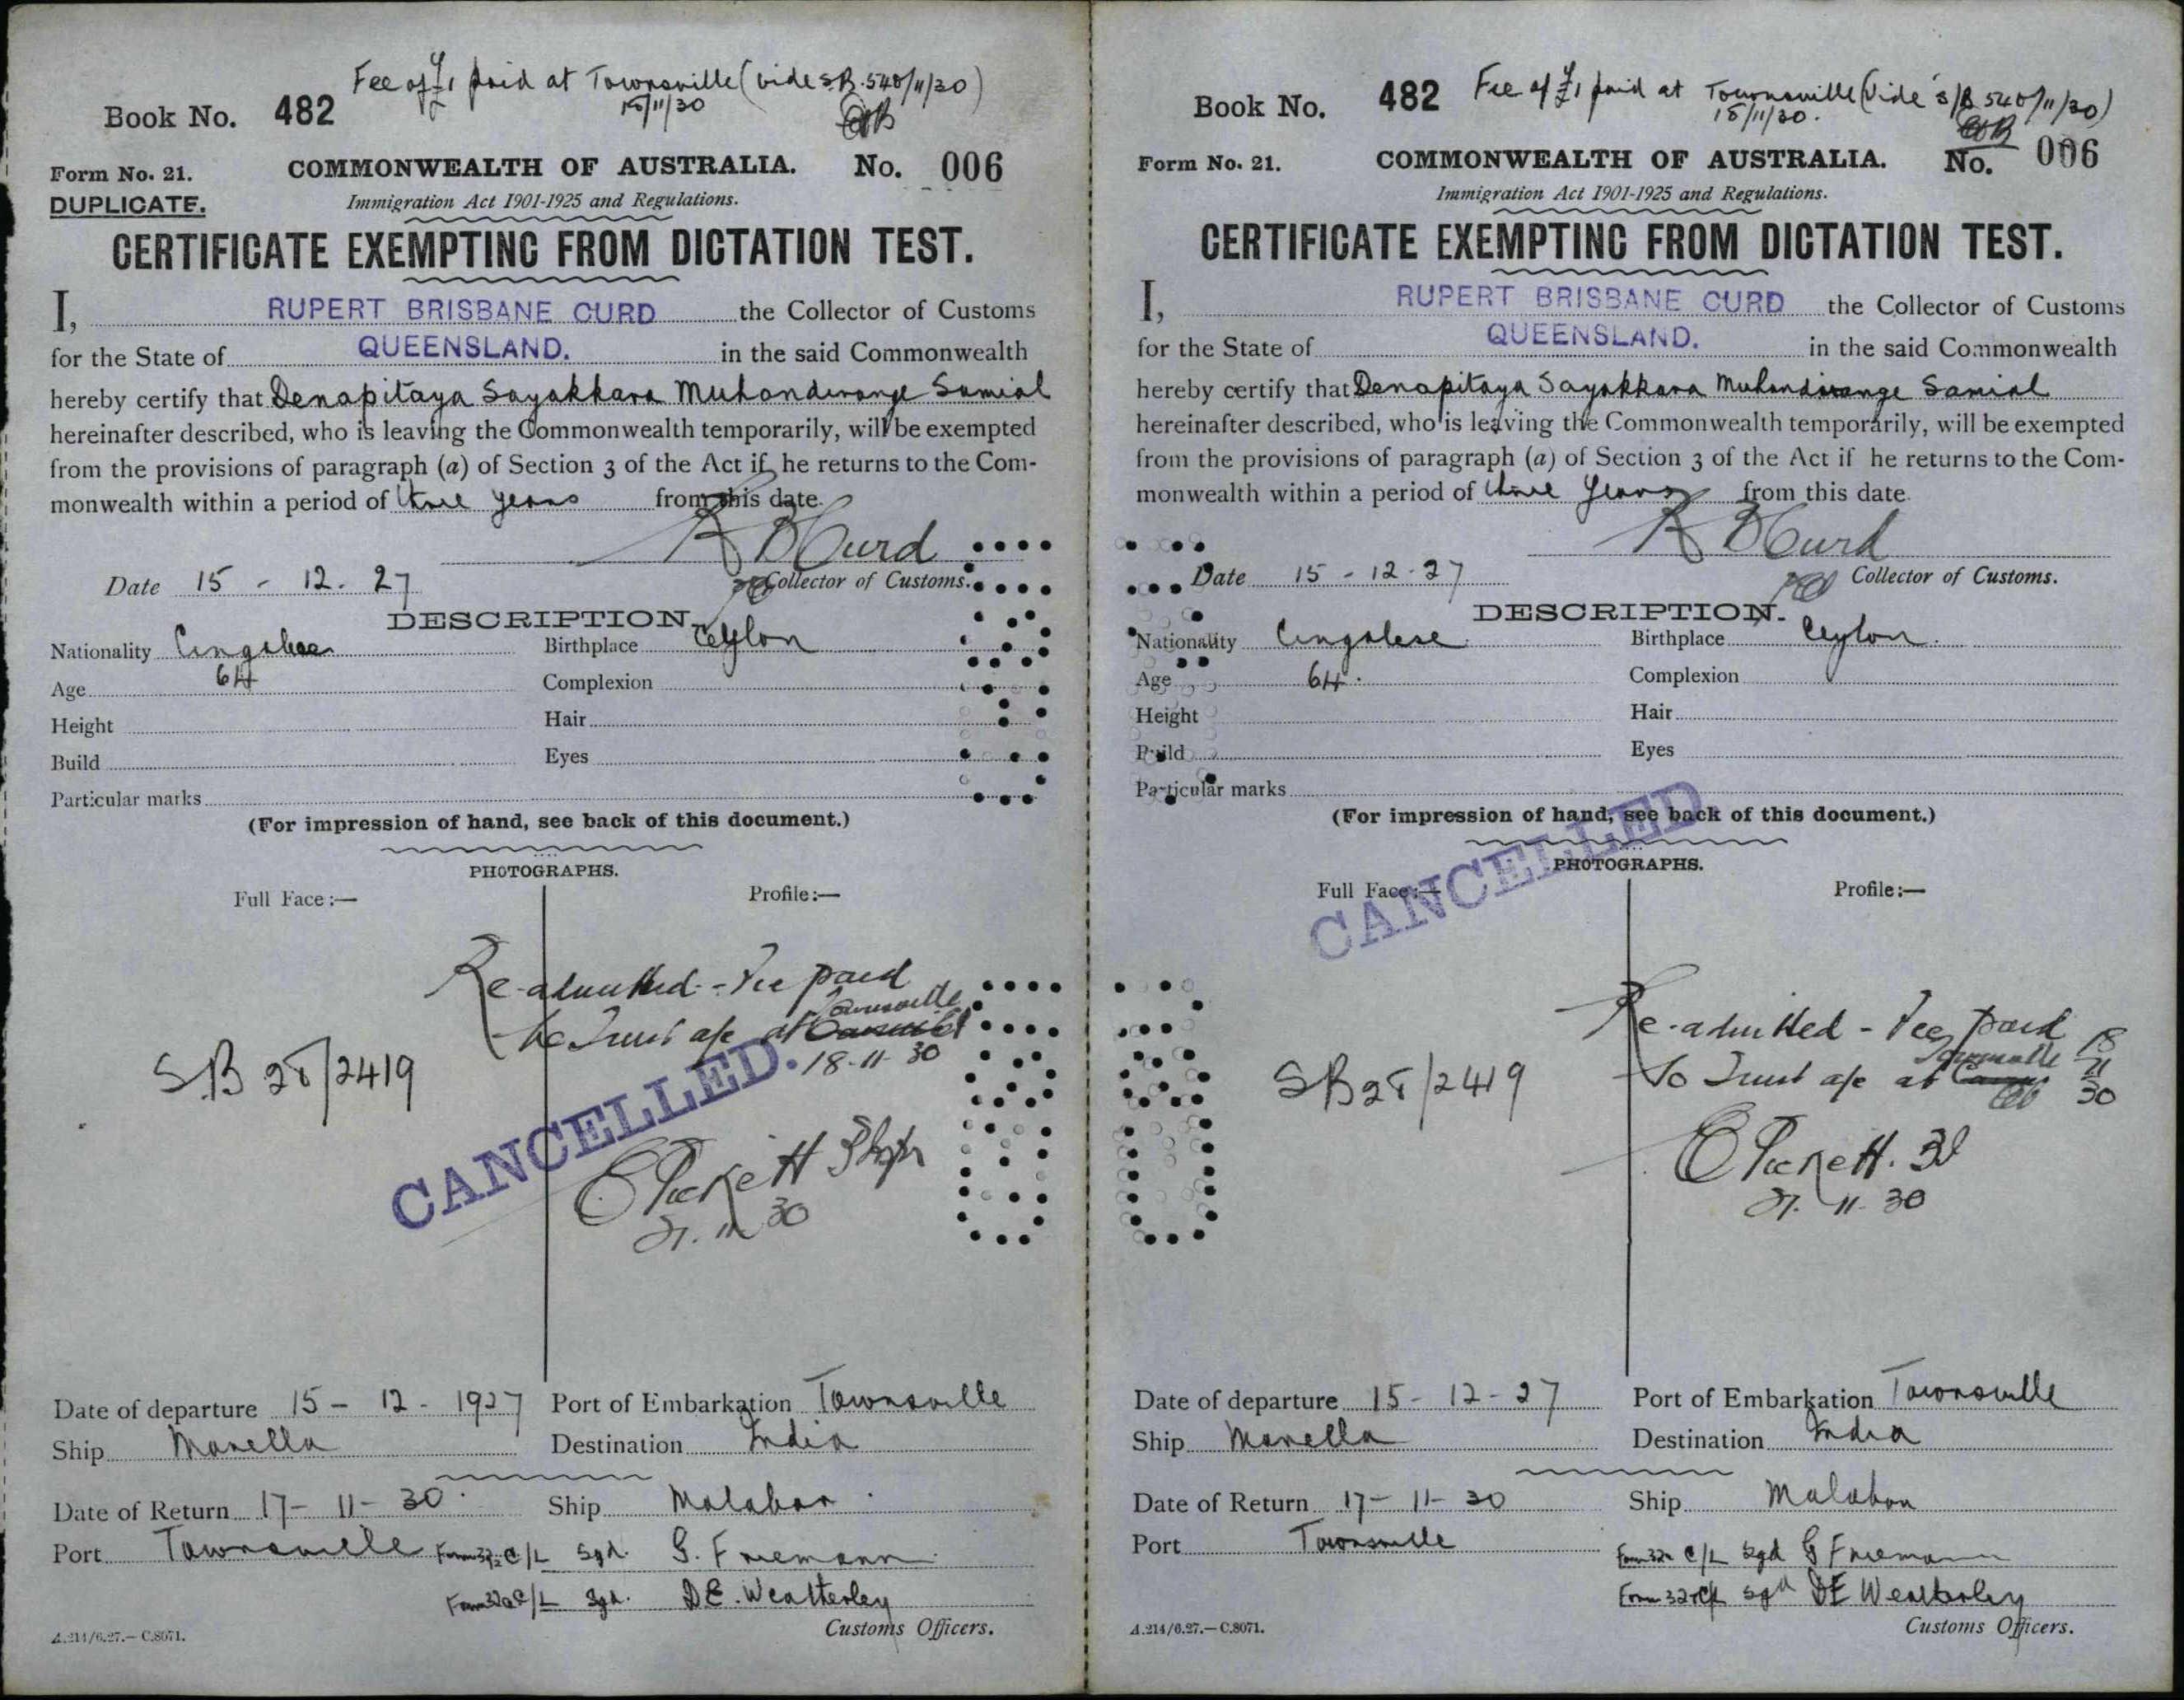 Fee of £1 paid at Townsville (vide S.B. 540/11/30)
18/11/30
Book No. 482
Form No. 21. COMMONWEALTH OF AUSTRALIA. No. 006
DUPLICATE. Immigration Act 1901-1925 and Regulations.
CERTIFICATE EXEMPTING FROM DICTATION TEST.
I, RUPERT BRISBANE CURD the Collector of Customs
for the State of QUEENSLAND. in the said Commonwealth
hereby certify that Denapitaya Sayakkara Muhandirange Samial
hereinafter described, who is leaving the Commonwealth temporarily, will be exempted
from the provisions of paragraph (a) of Section 3 of the Act if he returns to the Com-
monwealth within a period of three years from this date.
R B Curd
Date 15 - 12. 27 Collector of Customs.
DESCRIPTION.
Nationality Cingalese Birthplace Ceylon
Age 64 Complexion
Height Hair
Build Eyes
Particular marks
(For impression of hand, see back of this document.)
PHOTOGRAPHS.
Full Face:— Profile:—
Re-admitted - Fee paid
to Trust a/c at Townsville
18-11-30
S.B 28/2419
CANCELLED.
C Puckett
21.11.30
Date of departure 15 - 12 - 1927 Port of Embarkation Townsville
Ship Morella Destination India
Date of Return 17 - 11 - 30 Ship Malabar
Port Townsville Form 32 C/L Sgd. G. Friemann
Form 32a C/L Sgd. D.E. Weatherley
Customs Officers.
A.214/6.27.—C.8071.
Fee of £1 paid at Townsville (Vide S/B 540/11/30)
18/11/30.
Book No. 482
Form No. 21. COMMONWEALTH OF AUSTRALIA. No. 006
Immigration Act 1901-1925 and Regulations.
CERTIFICATE EXEMPTING FROM DICTATION TEST.
I, RUPERT BRISBANE CURD the Collector of Customs
for the State of QUEENSLAND. in the said Commonwealth
hereby certify that Denapitaya Sayakkara Muhandirange Samial
hereinafter described, who is leaving the Commonwealth temporarily, will be exempted
from the provisions of paragraph (a) of Section 3 of the Act if he returns to the Com-
monwealth within a period of three years from this date.
R B Curd
Date 15 - 12 - 27 Collector of Customs.
DESCRIPTION.
Nationality Cingalese Birthplace Ceylon
Age 64. Complexion
Height Hair
Build Eyes
Particular marks
(For impression of hand, see back of this document.)
CANCELLED.
PHOTOGRAPHS.
Full Face:— Profile:—
Re-admitted - Fee paid
to Trust a/c at Townsville 18/11/30
SB 28/2419
C Puckett.
21. 11. 30
Date of departure 15 - 12 - 27 Port of Embarkation Townsville
Ship Morella Destination India
Date of Return 17 - 11 - 30 Ship Malabar
Port Townsville
Form 32 C/L Sgd G Friemann
Form 32a C/L Sgd DE Weatherley
Customs Officers.
A.214/6.27.—C.8071.